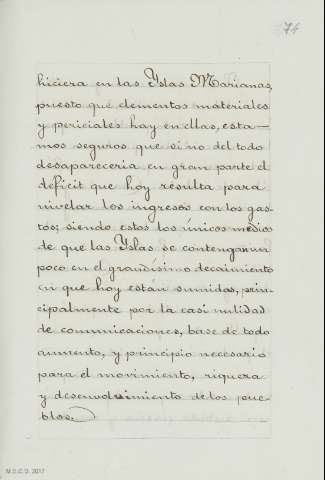 74
hiciera en las Yslas Marianas,
puesto que elementos materiales
y periciales hay en ellas, esta-
mos seguros que si no del todo
desapareceria en gran parte el
deficit que hoy resulta para
nivelar los ingresos con los gas-
tos; siendo estos los únicos medios
de que las Yslas se contengan un
poco en el grandísimo decaimiento
en que hoy están sumidas, prin-
cipalmente por la casi nulidad
de comunicaciones, base de todo
aumento, y principio necesario
para el movimiento, riqueza
y desenvolvimiento de los pue-
blos.
M.E.C.D. 2017